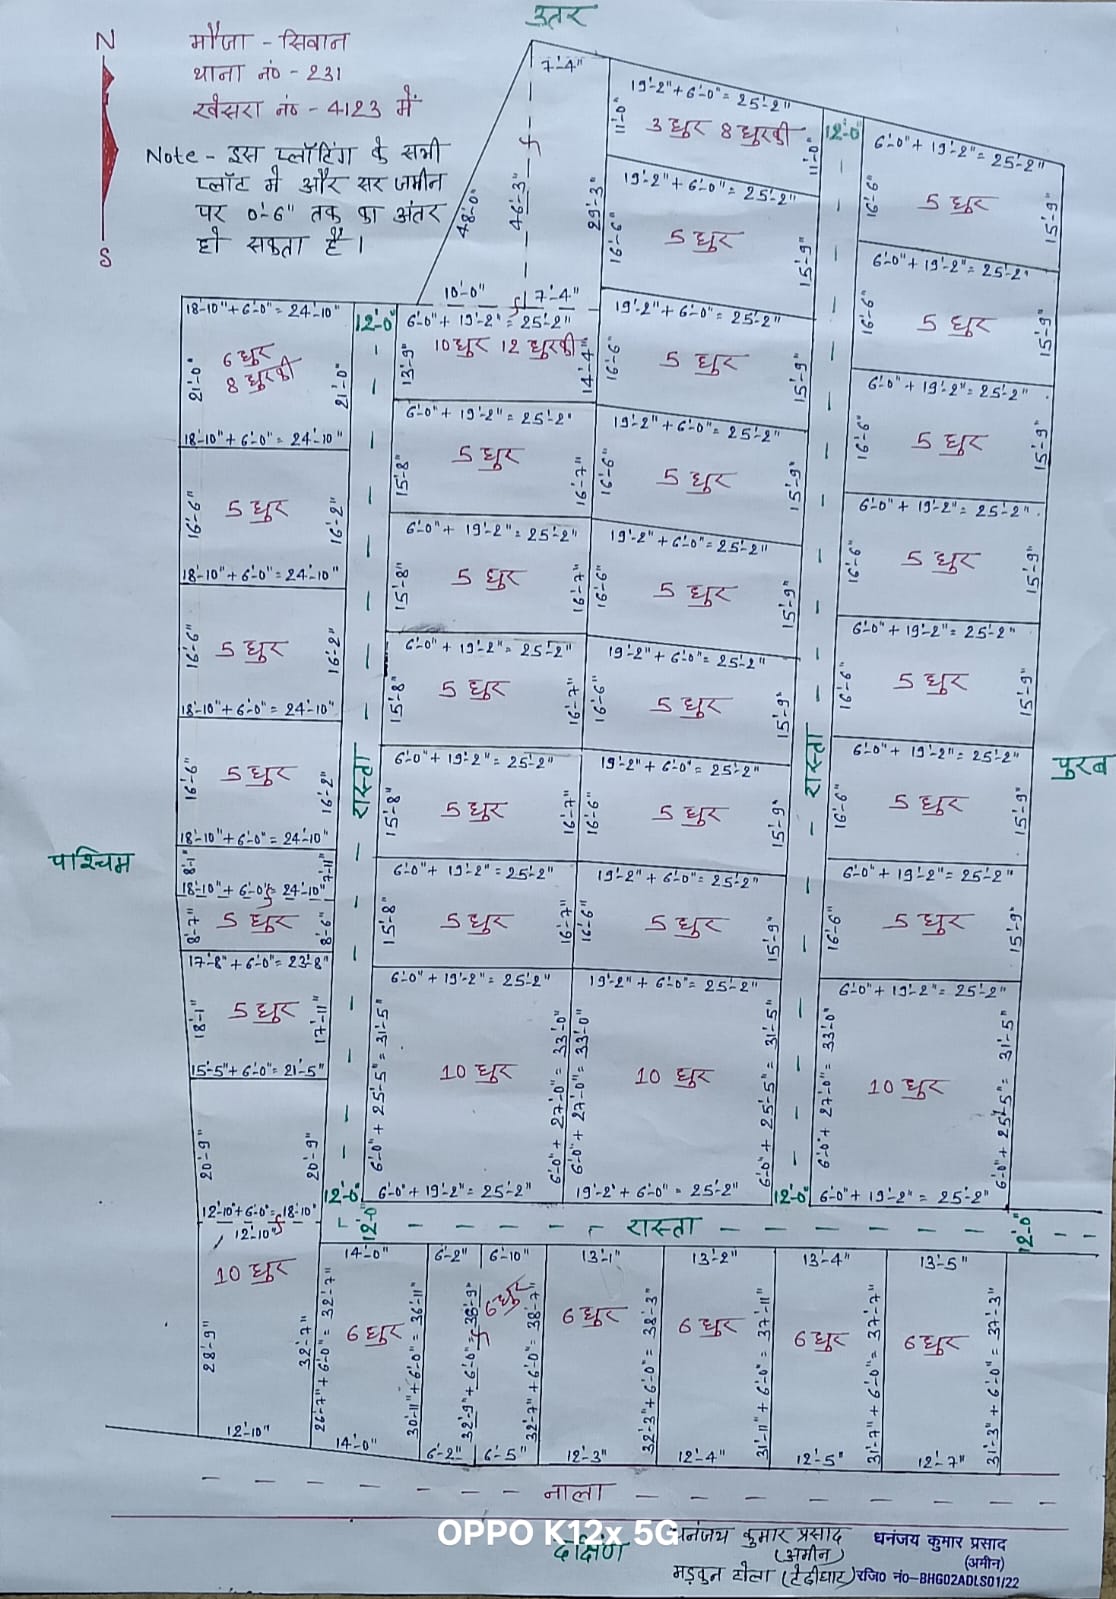 उतर
N
S
मौजा - सिवान
थाना नं० - 231
खेसरा नं० - 4123 में
Note - इस प्लॉटिंग के सभी
प्लॉट में और सर जमीन
पर 0'-6" तक का अंतर
हो सकता है।
7'-4"
48'-0"
46'-3"
29'-3"
10'-0" 7'-4"
19'-2"+6'-0"= 25'-2"
11'-0" 3 धुर 8 धुरकी 11'-0"
19'-2"+6'-0"= 25'-2"
16'-6" 5 धुर 15'-9"
19'-2"+6'-0"= 25'-2"
16'-6" 5 धुर 15'-9"
19'-2"+6'-0"= 25'-2"
16'-6" 5 धुर 15'-9"
19'-2"+6'-0"= 25'-2"
16'-6" 5 धुर 15'-9"
19'-2"+6'-0"= 25'-2"
16'-6" 5 धुर 15'-9"
19'-2"+6'-0"= 25'-2"
16'-6" 5 धुर 15'-9"
19'-2"+6'-0"= 25'-2"
16'-6" 5 धुर 15'-9"
19'-2"+6'-0"= 25'-2"
6'-0"+27'-0"= 33'-0" 10 धुर 6'-0"+25'-5"= 31'-5"
19'-2"+6'-0"= 25'-2"
12'-0"
रास्ता
12'-0"
6'-0"+19'-2"= 25'-2"
16'-6" 5 धुर 15'-9"
6'-0"+19'-2"= 25'-2"
16'-6" 5 धुर 15'-9"
6'-0"+19'-2"= 25'-2"
16'-6" 5 धुर 15'-9"
6'-0"+19'-2"= 25'-2"
16'-6" 5 धुर 15'-9"
6'-0"+19'-2"= 25'-2"
16'-6" 5 धुर 15'-9"
6'-0"+19'-2"= 25'-2"
16'-6" 5 धुर 15'-9"
6'-0"+19'-2"= 25'-2"
16'-6" 5 धुर 15'-9"
6'-0"+19'-2"= 25'-2"
6'-0"+27'-0"= 33'-0" 10 धुर 6'-0"+25'-5"= 31'-5"
6'-0"+19'-2"= 25'-2"
पुरब
पाश्चिम
18'-10"+6'-0"= 24'-10"
21'-0" 6 धुर 21'-0"
8 धुरकी
18'-10"+6'-0"= 24'-10"
16'-6" 5 धुर 16'-2"
18'-10"+6'-0"= 24'-10"
16'-6" 5 धुर 16'-2"
18'-10"+6'-0"= 24'-10"
16'-6" 5 धुर 16'-2"
18'-10"+6'-0"= 24'-10"
8'-1" 7'-11"
18'-10"+6'-0"= 24'-10"
8'-7" 5 धुर 8'-6"
17'-8"+6'-0"= 23'-8"
18'-1" 5 धुर 17'-11"
15'-5"+6'-0"= 21'-5"
20'-9" 20'-9"
12'-10"+6'-0"= 18'-10"
12'-10"
10 धुर
28'-9" 32'-7"
12'-10"
12'-0"
रास्ता
12'-0"
6'-0"+19'-2"= 25'-2"
13'-9" 10 धुर 12 धुरकी 14'-4"
6'-0"+19'-2"= 25'-2"
15'-8" 5 धुर 16'-7"
6'-0"+19'-2"= 25'-2"
15'-8" 5 धुर 16'-7"
6'-0"+19'-2"= 25'-2"
15'-8" 5 धुर 16'-7"
6'-0"+19'-2"= 25'-2"
15'-8" 5 धुर 16'-7"
6'-0"+19'-2"= 25'-2"
15'-8" 5 धुर 16'-7"
6'-0"+19'-2"= 25'-2"
6'-0"+25'-5"= 31'-5" 10 धुर 6'-0"+27'-0"= 33'-0"
6'-0"+19'-2"= 25'-2"
12'-0" रास्ता 12'-0"
14'-0" 6'-2" 6'-10" 13'-1" 13'-2" 13'-4" 13'-5"
26'-7"+6'-0"= 32'-7" 6 धुर 30'-11"+6'-0"= 36'-11"
32'-9"+6'-0"= 38'-9" 6 धुर 32'-7"+6'-0"= 38'-7"
6 धुर 32'-3"+6'-0"= 38'-3"
6 धुर 31'-11"+6'-0"= 37'-11"
6 धुर 31'-7"+6'-0"= 37'-7"
6 धुर 31'-3"+6'-0"= 37'-3"
14'-0" 6'-2" 6'-5" 12'-3" 12'-4" 12'-5" 12'-7"
नाला
OPPO K12x 5G
दक्षिण
धनंजय कुमार प्रसाद
(अमीन)
मड़कुन टोला (टेढीघाट)
धनंजय कुमार प्रसाद
(अमीन)
रजि० नं०-BHG02ADLS01/22